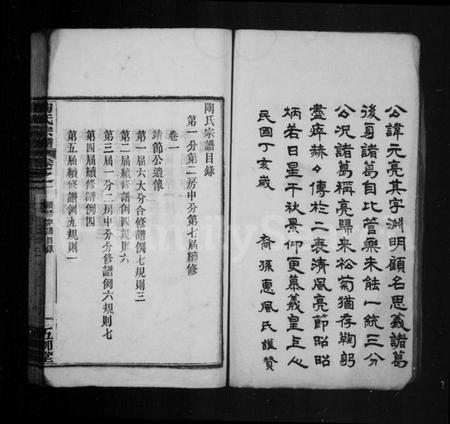 公諱元亮其字淵明顧名思義諸葛
後身諸葛自比管樂未能一統三分
公況諸葛稱亮歸來松菊猶存鞠躬
盡瘁赫々傳於二表清風亮節昭昭
炳若日星千秋景仰更慕羲皇上心
民國丁亥歲 裔孫惠風氏謹贊
陶氏宗譜目錄
第一分第二房中分第七屆續修
卷一
靖節公遺像
第一屆六大分合修譜例七規則三
第二屆續修譜例四規則六
第三屆一分二房中分分修譜例六規則七
第四屆續修譜例四
第五屆續修譜例九規則一
陶氏宗譜
五柳堂